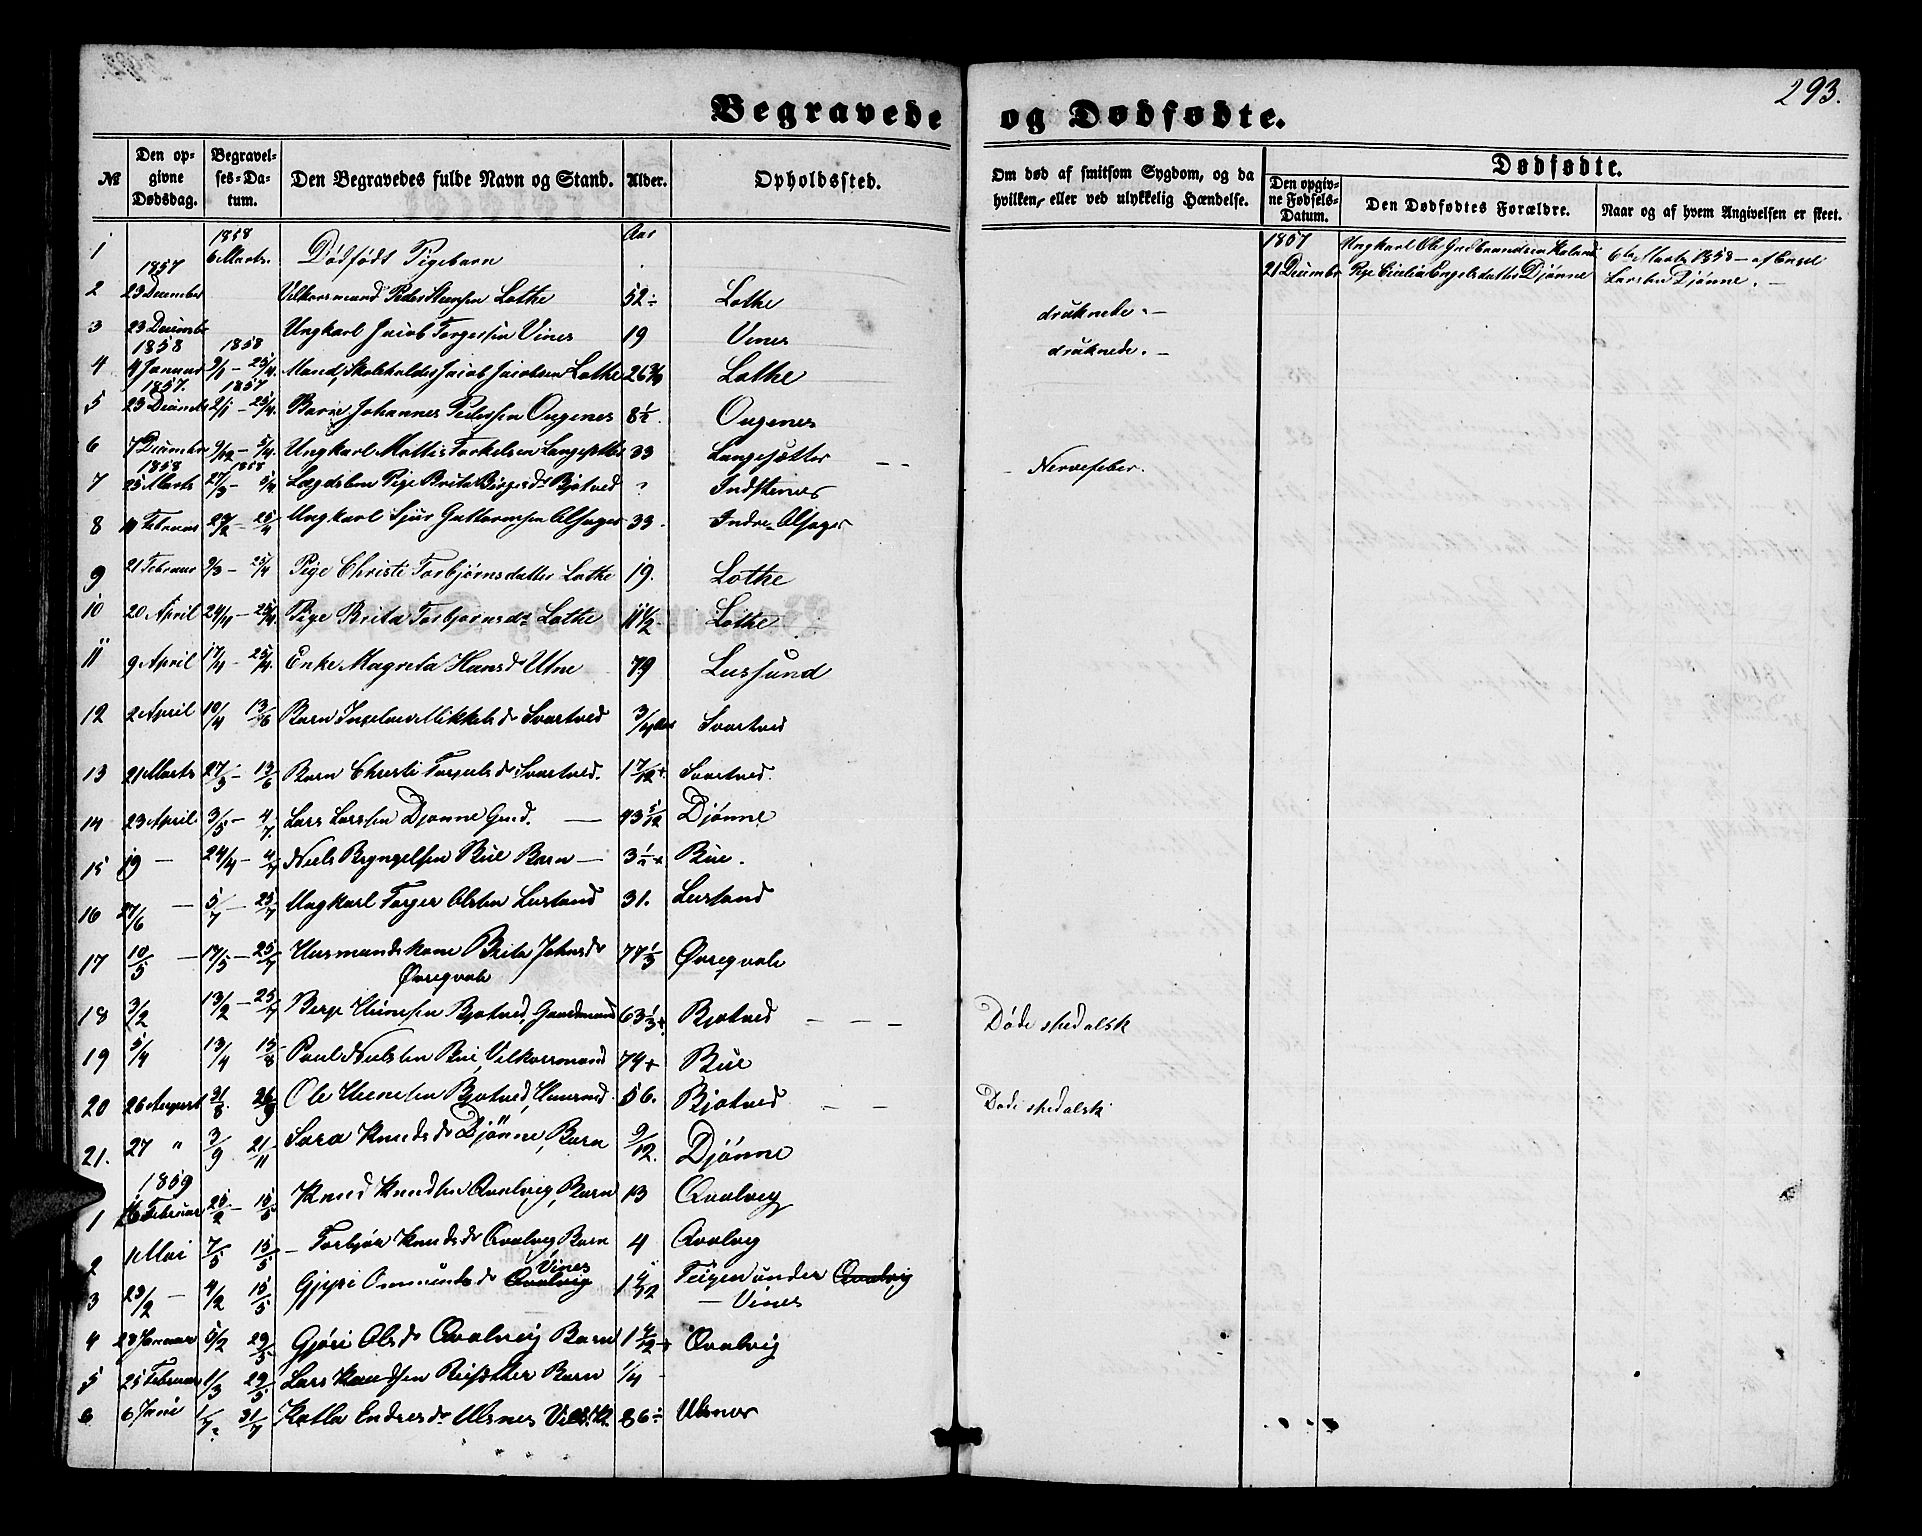 293.
Begravede og Dødfødte.
№ Den opgivne Dødsdag. Begravelses-Datum. Den Begravedes fulde Navn og Stand. Alder. Opholdssted. Om død af smitsom Sygdom, og da hvilken, eller ved ulykkelig Hændelse. Dødfødte.
Den opgivne Fødsels-Datum. Den Dødfødtes Forældre. Naar og af hvem Angivelsen er skeet.
1858 Aar 1857 Ungkarl Ole Gudbrandsen
1 6 Marts Dødfødt Pigebarn 21 Decembr Pge Cicilia Engelsdatter Djønne 6te Marts 1858 - af Engel Larsen Djønne. -
1857
2 23 December Vilkaarsmand Peder Lothe 52 Lothe druknede. -
3 23 Decembr Ungkarl Jacob Torgersen Vines 19 Vines druknede. -
1858 1858
4 4 Januar 9/1 - 25/4 Mand, Skoleholder Jacob Jacobsen Lothe 26 Lothe
1857. 1857
5 23 Decembr 2/1 - 25/4 Barn Johannes Pedersen Ougenes 8½ Ougenes
6 7 Decembr 9/12 - 5/4 Ungkarl Mattis Torkelsen Langesætter 33 Langesætter - - Nervefeber.
1858 1858
7 25 Marts 27/3 - 5/4 Lægdslem Pige Brita Bjotved ? Indstenes
8 11 Februar 27/2 - 25/4 Ungkarl Sjur Guttormsen Alsager 33 Indre Alsager
9 21 Februar 9/3 - 25/4 Pige Christi Torbjørnsdatter Lothe 19. Lothe
10 20 April 24/4 - 25/4 Pige Brita Torbjørnsdr Lothe 11½ Lothe
11 9 April 17/4 - 25/4 Enke Magreta Hansd Utne 79 Lussund
12 2 April 10/4 13/6 Barn Mikkelsd Svartved 3/4 Svartved
13 21 Marts 27/3 - 13/6 Barn Christi Svartved. 1 7/12 Svartved.
14 23 April 3/5 - 4/7 Lars Larssen Djønne Grd. - 43 5/12 Djønne
15 19 - 24/4 - 4/7 Niels Bryngelsen Bue Barn - 3½ Bue.
16 27/6 - 5/7 - 25/7 Ungkarl Torger Olsen Lussand 31. Lussand
17 10/5 - 17/5 - 25/7 Husmandskone Brita Johnsdr Øvreqvale 77 1/3 Øvreqvale
18 3/2 13/2 - 25/7 Berje Heinesen Bjotved, Gaardmand 63 1/3 Bjotved - - - Døde spedalsk
19 5/4 13/4 15/8 Paul Nielsen Bue, Vilkaarsmand 74 Bue
20 26 August 31/8 26/9 Ole Heinesen Bjotved, Husmd. 56. Bjotved - - Døde spedalsk
21. 27 " 3/9 21/11 Sara Knudsdr Djønne, Barn 9/12. Djønne
1859
1 16 Februar 25/2 - 15/5 Knud Knudsen Qvalvig, Barn 13 Qvalvig
2 1 Mai 7/5 15/5 - Torbjør Knudsdr Qvalvig Barn 4 Qvalvig
3 23/2 - 4/2 15/5 Omundsdr Qvalvig Vines 1 Teigen under Qvalvig - Vines
4 28 Januar 5/2 29/5 Gjøri Olsdr Qvalvig Barn 1 Qvalvig
5 25 Februar 1/3 29/5 Lars Knudsen Barn 1/4
6 6 Juni 31/7 Katla Endresdr Ulsnes 86 Ulsnes